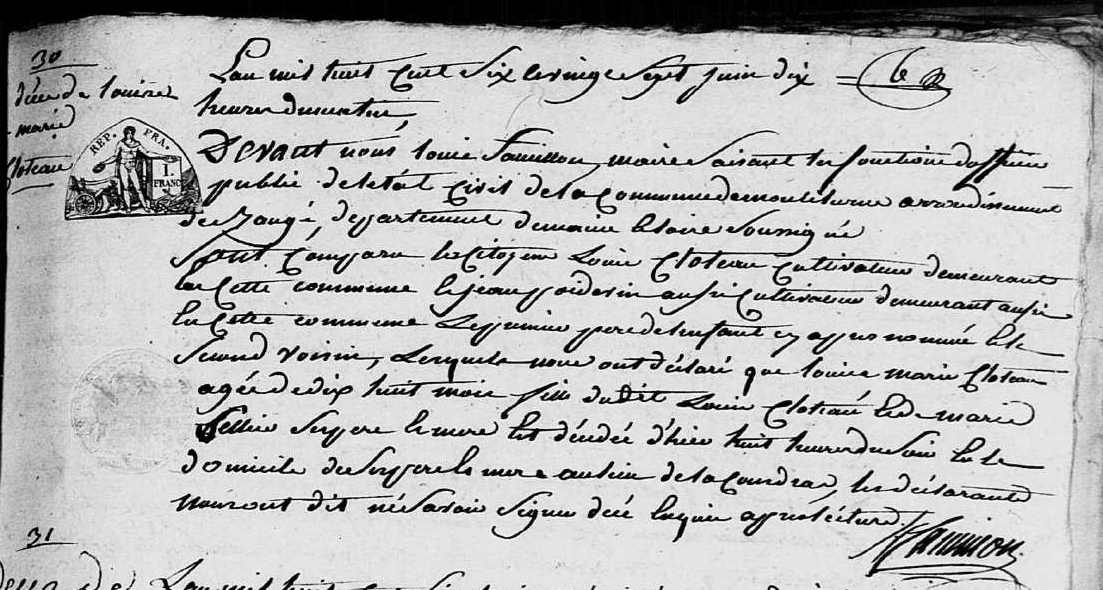 30
décé de louise
marie
Cloteau
REP. FRA.
1. FRANC
Lan mil huit Cent Six le vingt Sept juin dix
heures du matin
Devant nous louis maire faisant les fonctions dofficier
public de letat Civil de la Commune de arrondissement
de département de maine et loire Soussigné
Sont Comparu les Citoyens Louis Cloteau Cultivateur demeurant
en Cette commune et jean poidevin aussi Cultivateur demeurant aussi
en Cette commune Le premier pere de lenfant cy apres nommé et le
Second voisin, Lesquels nous ont déclaré que louise marie Cloteau
agée de dix huit mois fille dudit Louis Cloteau et de marie
Ses pere et mere Est décédée d'hier huit heures du Soir En le
domicile de Ses pere et mere au lieu de la Coudray, les déclarants
nous ont dit né Savoir Signer de ce Enquis apres lécture
31
Lan mil huit